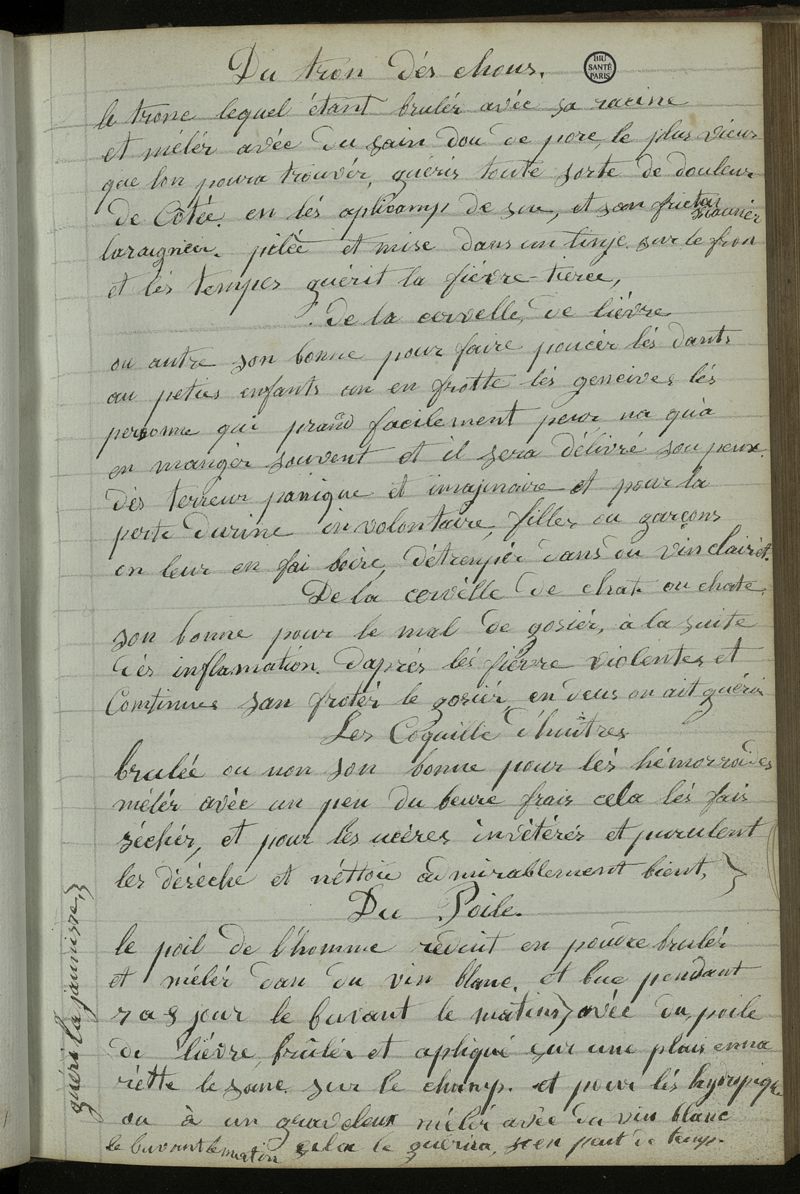 Du tron dés chous.
BIU
SANTÉ
PARIS
le tronc lequel étant brulér avéc sa racine
et mélér avéc du sain dou de porc, le plus vieux
que lon poura trouvér, guéris toute sorte de douleur
de Cotée. en lés aplicamp de su, et son
laraignier. pilée et mise dans un linje sur le fron
et lés tempes guérit la fiévre tierce,
De la cervelle de liévre
ou autre son bonne pour faire poucér lés dants
au petis enfants on en frotte lés gencives lés
personne qui prand facilement peur na qu'a
en manger souvent et il sera délivré sou peux
dés terreur panique et imajinaire et pour la
perte durine involontaire, filles ou garçons
on leur en fai boire, détrempér dans du vin clairét.
De la cervèlle de chat ou chate
son bonne pour le mal de gosiér, a la suite
dés inflamation. daprés lés fiévre violentes et
Continues san frotér le gosiér en deus on ait guéris
Les Coquille d'huîtres
brulée ou non son bonne pour lés hémorroïdes
mélér avéc un peu du beure frais cela lés fais
séchér, et pour lés ucères invétérés et purulent
les déséche et néttoie admirablement bient,
Du Poile.
le poil de l'homme réduit en poudre brulér
et mélér dan du vin blanc, et bue pendant
7 a 8 jour le buvant le matins) avéc du poile
guéri la jaunisse,}
de liévre, brûlér et apliqué sur une plais enma
riétte le sanc sur le champ. et pour lés hydropique
ou à un graveleux mélér avéc du vin blanc
le buvant le matin cela le guérira, en peut de temp.